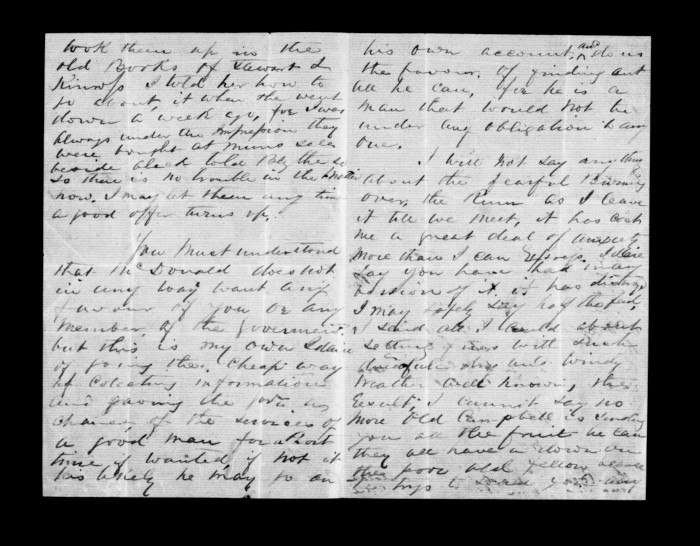 look them up in the
old Books of Stewart &
Kinross I told her how to
go about it when she went
down a week ago, for I was
always under the impression they
were bought at Munns sales
beside Black told Rhy the so
so there is no trouble in the matter
now. I may let them any time
a good offer turns up.
You must understand
that McDonald does not
in any way want any
favour of you or any
Member of the goverment
but this is my own Idaia
of going the cheap way
of colecting information
and gaving the you a
chance of the services of
a good man for a short
time if wanted, if not it
is likely he may go on
his own account, and do us
the favour, of finding out
all he can, for he is a
man that would not be
under any obligation to any
one.
I will not say any thing
about the fearful Burning
over, the Run as I leave
it till we meet, it has cost
me a great deal of anxiety
more than I can I dare
say you have had many
version of it it has
I may safely say half the feed,
I said all I could about
setting fires with such
and windy
weather well known, the
result, I cannot say no
more Old Campbell is sending
you all the fruit he can
they all have a down on
the poor old fellow
he trys to send you any